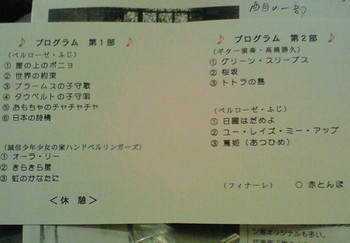 プログラム 第1部
(ベルローゼ・ふじ)
① 崖の上のポニョ
② 世界の約束
③ ブラームスの子守歌
④ タウベルトの子守唄
⑤ おもちゃのチャチャチャ
⑥ 日本の詩情
(誠信少年少女の家ハンドベルリンガーズ)
① オーラ・リー
② きらきら星
③ 虹のかなたに
<休 憩>
プログラム 第2部
(ギター演奏・高橋勝久)
① グリーン・スリーブス
② 桜坂
③ トトラの島
(ベルローゼ・ふじ)
① 日曜はだめよ
② ユー・レイズ・ミー・アップ
③ 篤姫(あつひめ)
(フィナーレ) ○ 赤とんぼ